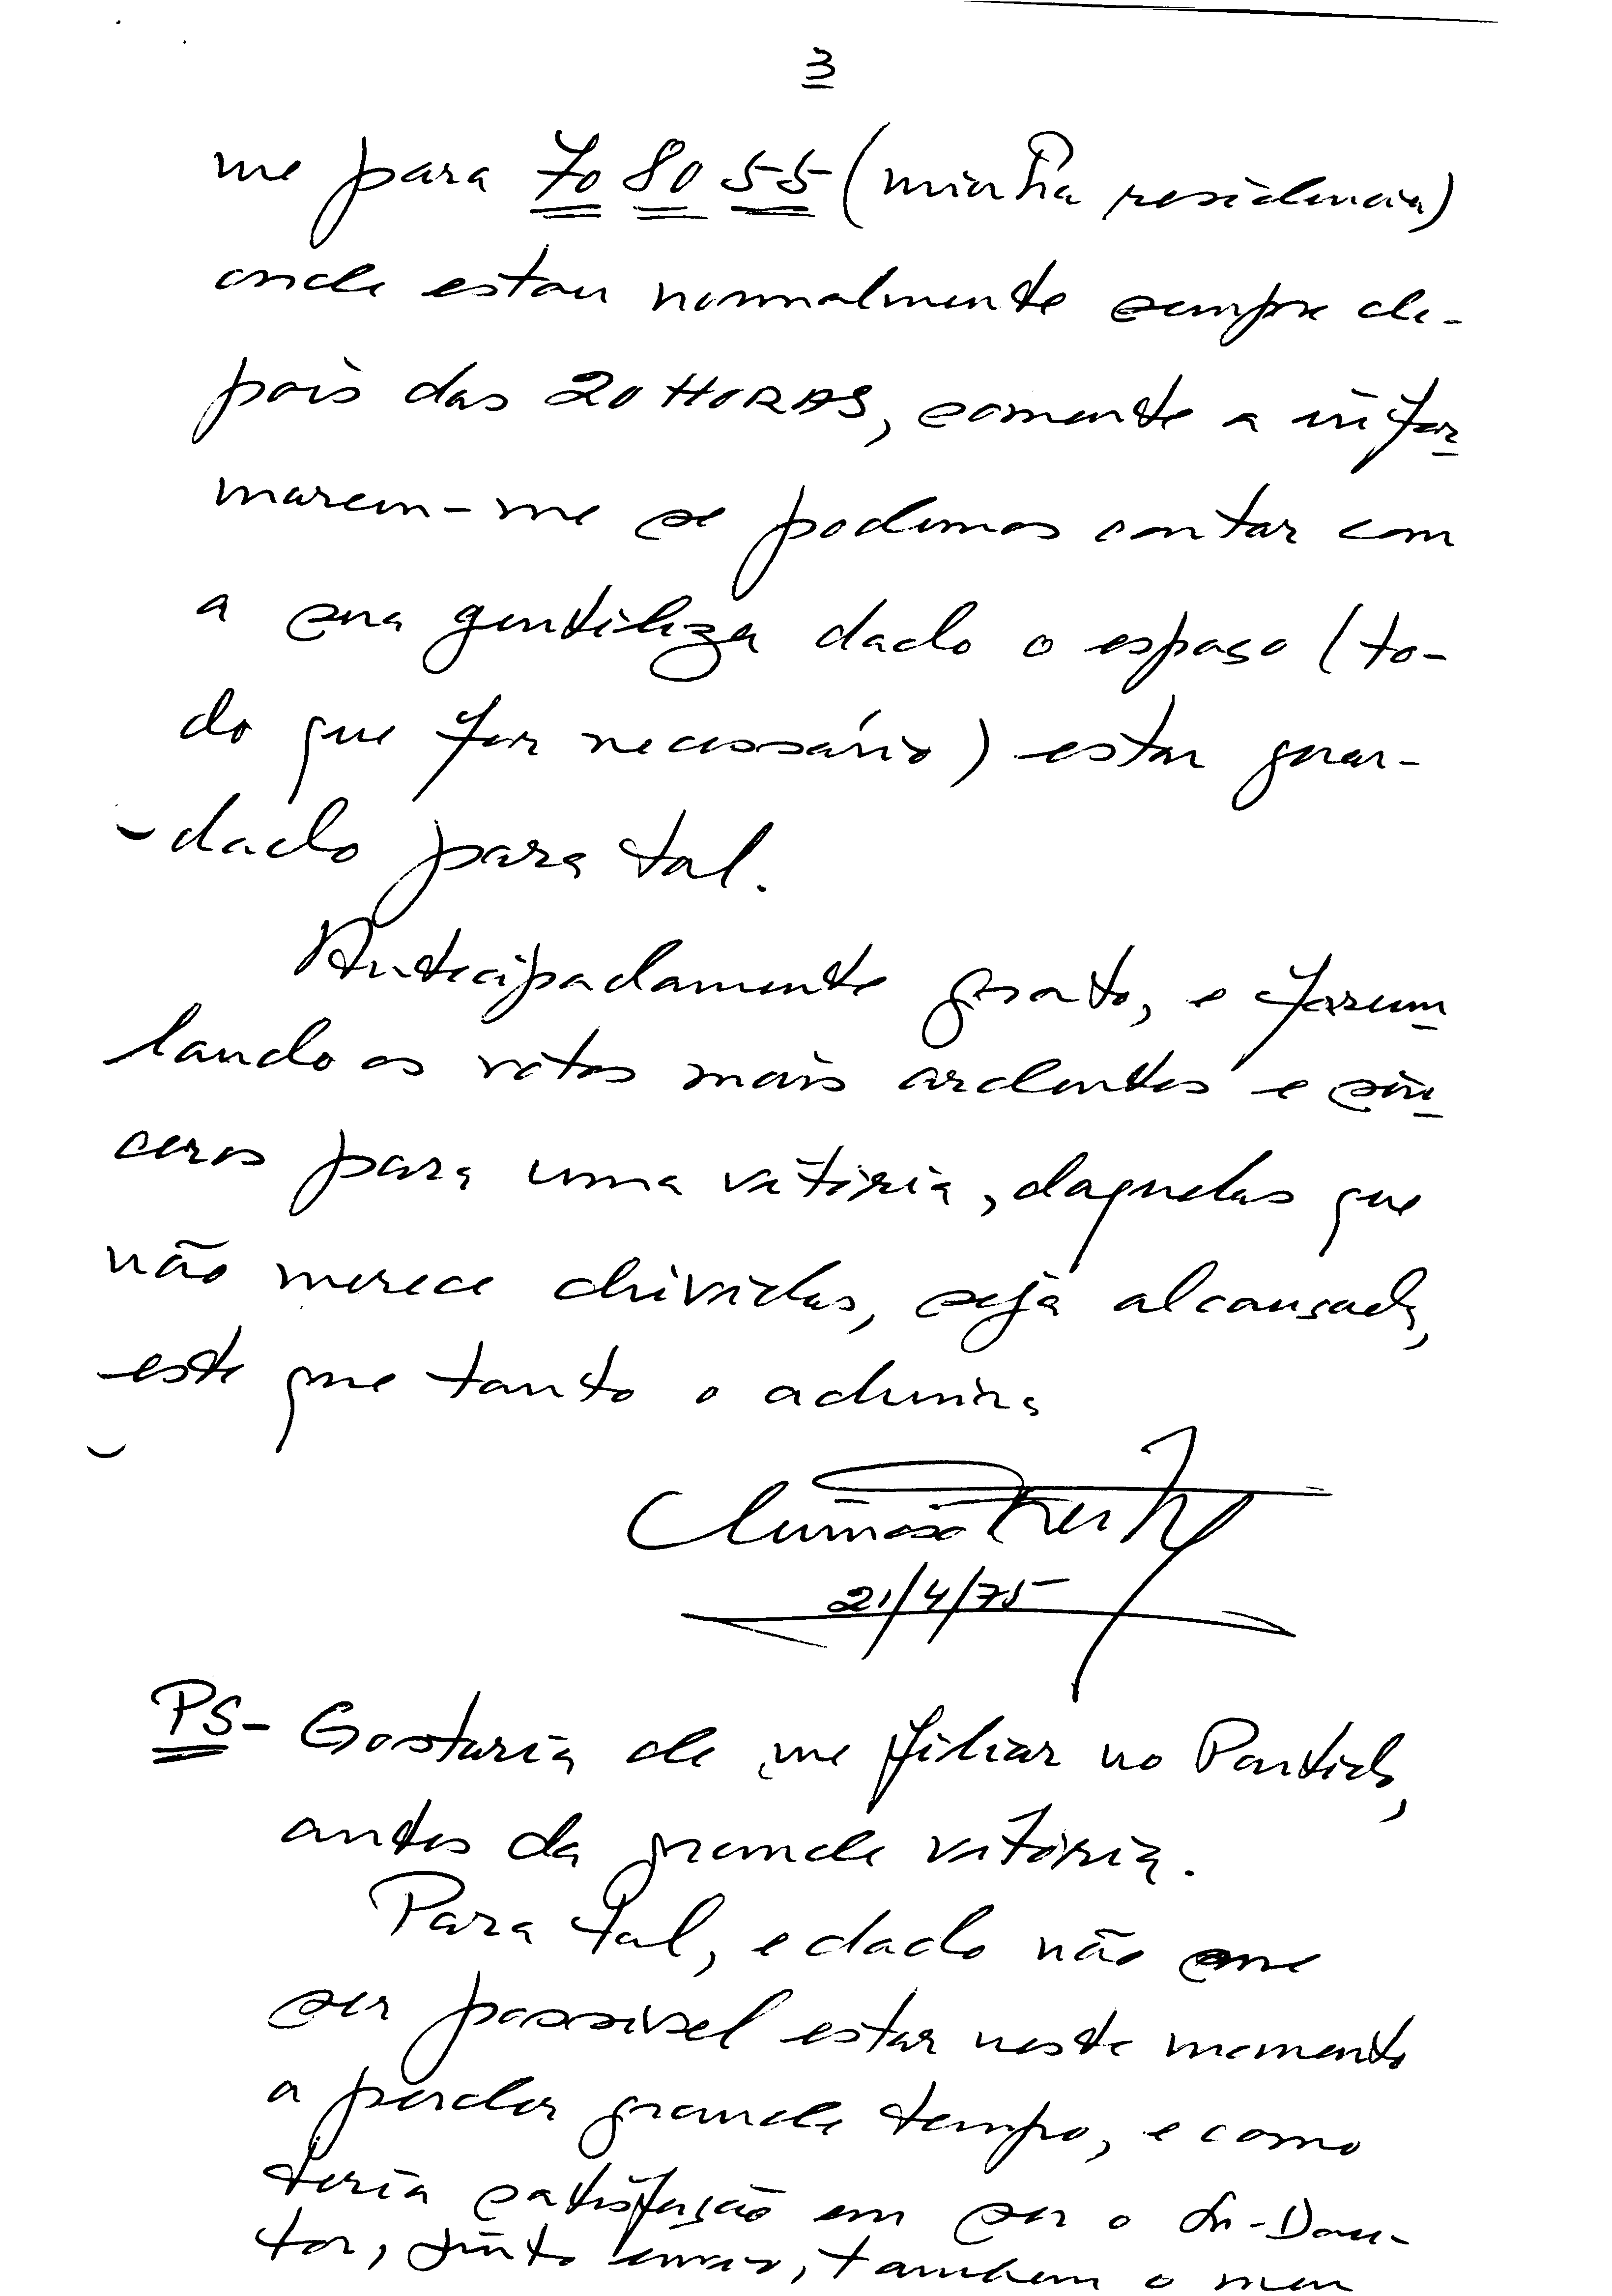 3
me para 70 80 55 (minha residencia)
onde estou normalmente sempre de-
pois das 20 HORAS, somente a infor
marem-me se podemos contar com
a sua gentileza dado o espaço (to-
do que for necessário) estar guar-
-dado para tal.
Antecipadamente grato, e formu
lando os votos mais ardentes e sin
ceros para uma vitória, daquelas que
não merece dúvidas, seja alcançada,
este que tanto o admira
21/4/75
PS- Gostaria de me filiar no Partido,
antes da grande vitória.
Para tal, e dado não me
ser possivel estar neste momento
a perder grande tempo, e como
teria satisfação em ser o Sr. Dou-
tor, junto envio, tambem o meu